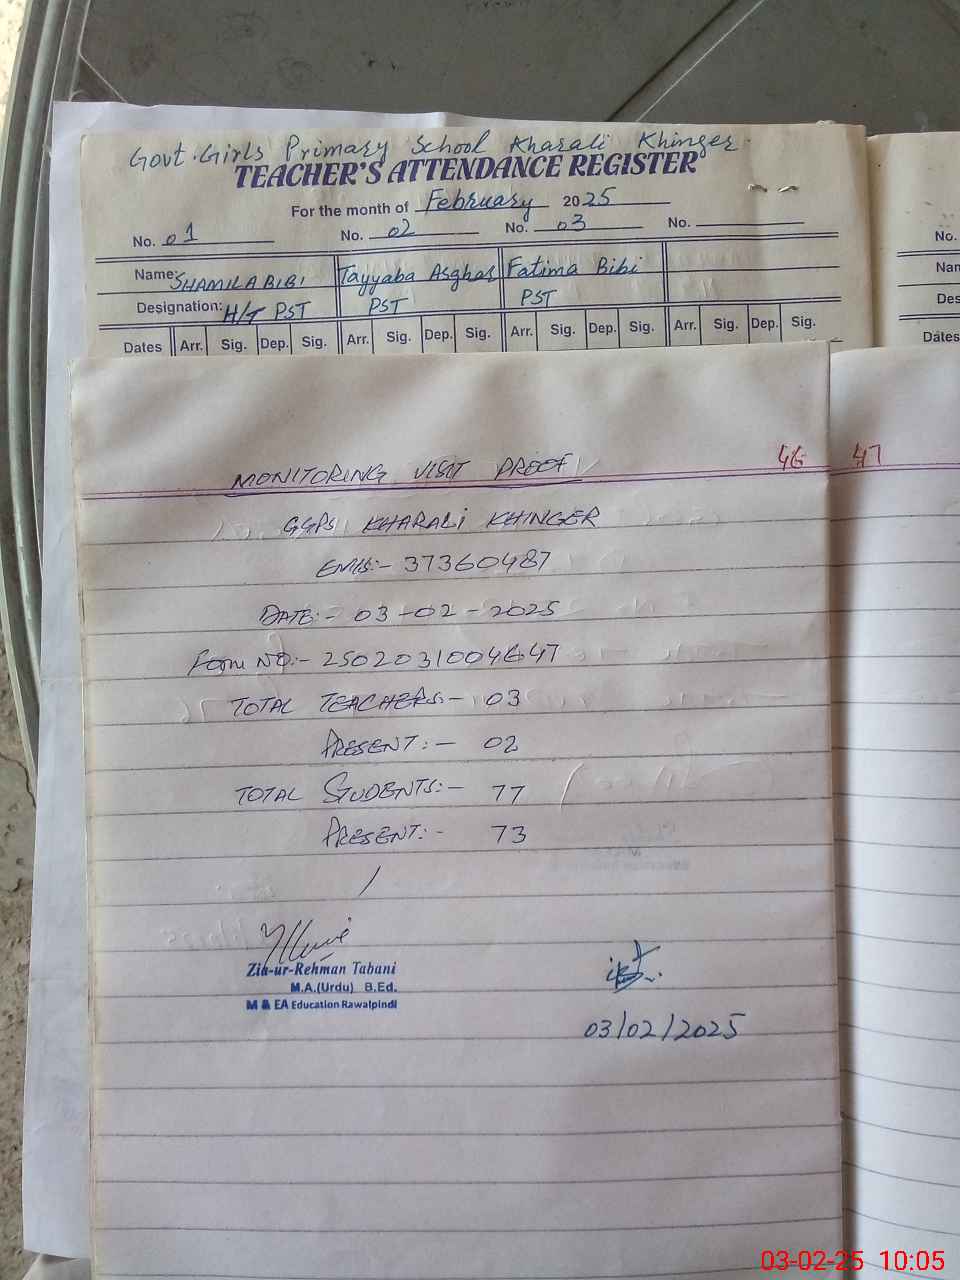 Govt. Girls Primary School Kharali Khinger.
TEACHER'S ATTENDANCE REGISTER
For the month of February 2025
No. 01 No. 02 No. 03 No.
Name: SHAMILA BIBI Tayyaba Asghar Fatima Bibi
Designation: H/T PST PST PST
Dates Arr. Sig. Dep. Sig. Arr. Sig. Dep. Sig. Arr. Sig. Dep. Sig. Arr. Sig. Dep. Sig.
No.
Nam
Des
Dates
46 47
MONITORING VISIT PROOF
GGPS KHARALI KHINGER
EMIS:- 37360487
DATE:- 03-02-2025
Form NO:- 2502031004647
TOTAL TEACHERS:- 03
PRESENT:- 02
TOTAL STUDENTS:- 77
PRESENT:- 73
Zia-ur-Rehman Tabani
M.A.(Urdu) B.Ed.
M & EA Education Rawalpindi
03/02/2025
03-02-25 10:05